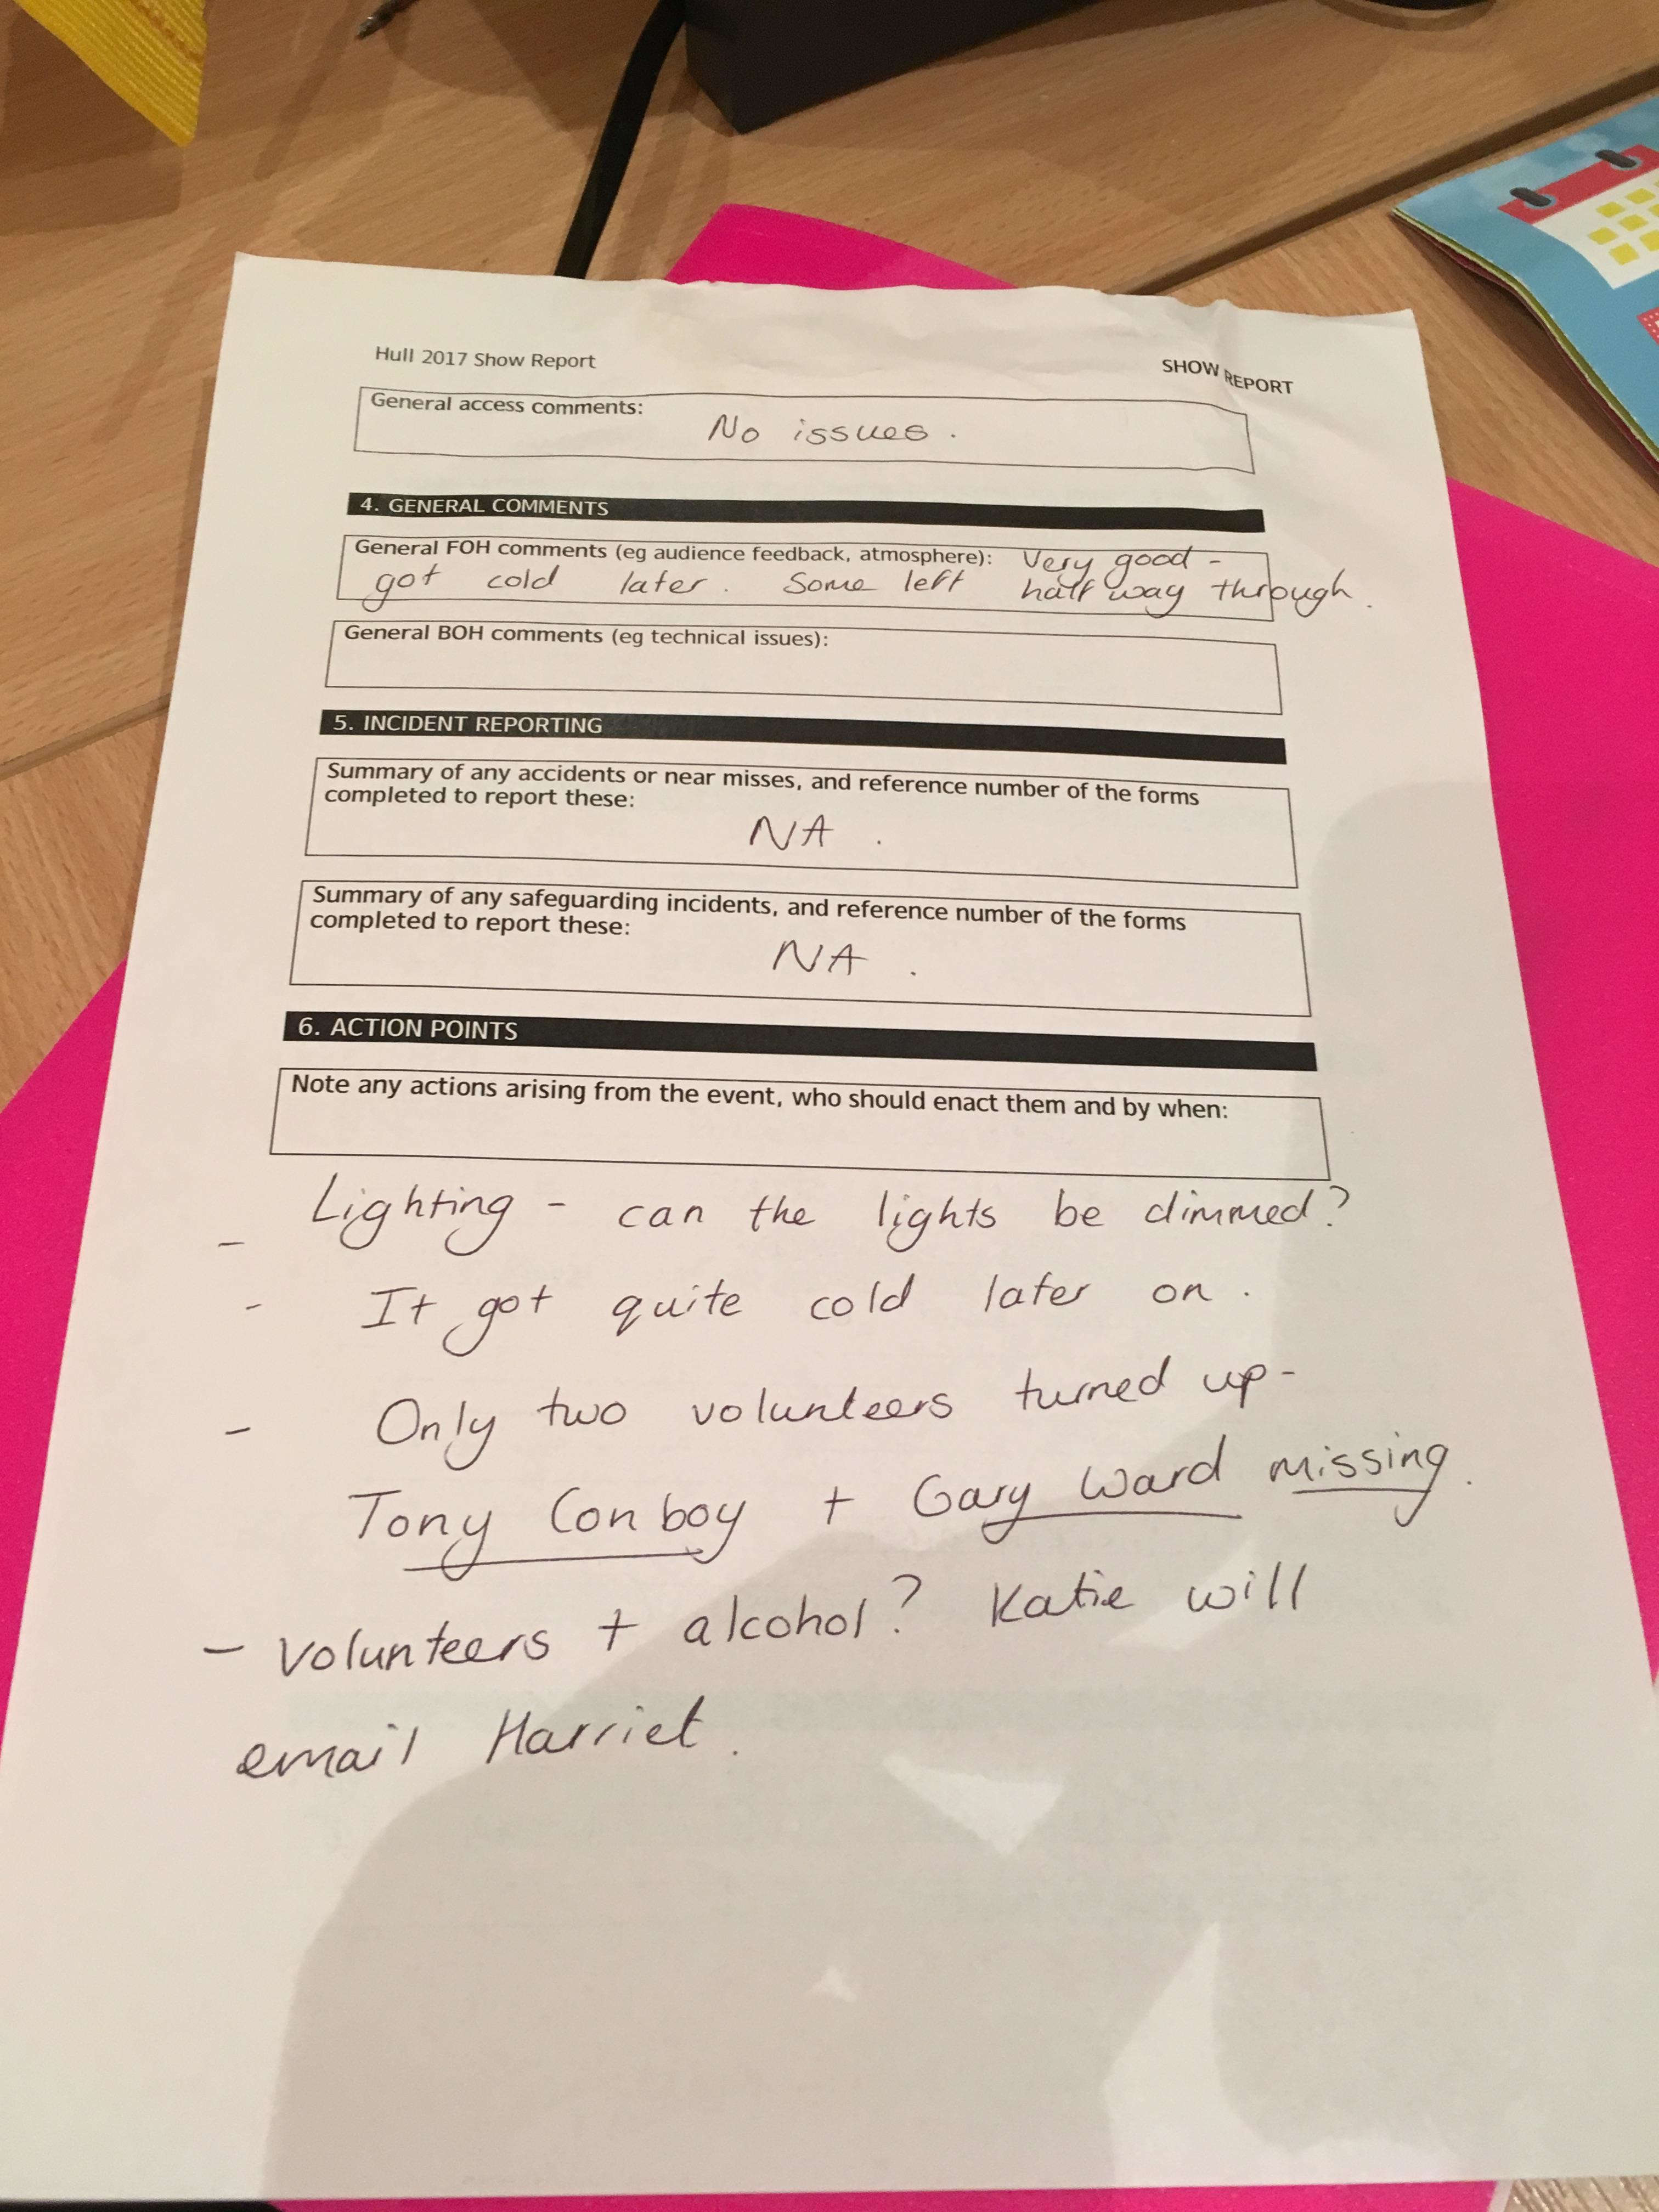 Hull 2017 Show Report
SHOW REPORT
General access comments:
No issues.
4. GENERAL COMMENTS
General FOH comments (eg audience feedback, atmosphere): Very good -
got cold later. Some left half way through.
General BOH comments (eg technical issues):
5. INCIDENT REPORTING
Summary of any accidents or near misses, and reference number of the forms
completed to report these:
NA.
Summary of any safeguarding incidents, and reference number of the forms
completed to report these:
NA.
6. ACTION POINTS
Note any actions arising from the event, who should enact them and by when:
- Lighting - can the lights be dimmed?
- It got quite cold later on.
- Only two volunteers turned up -
Tony Conboy + Gary Ward missing.
- Volunteers + alcohol? Katie will
email Harriet.